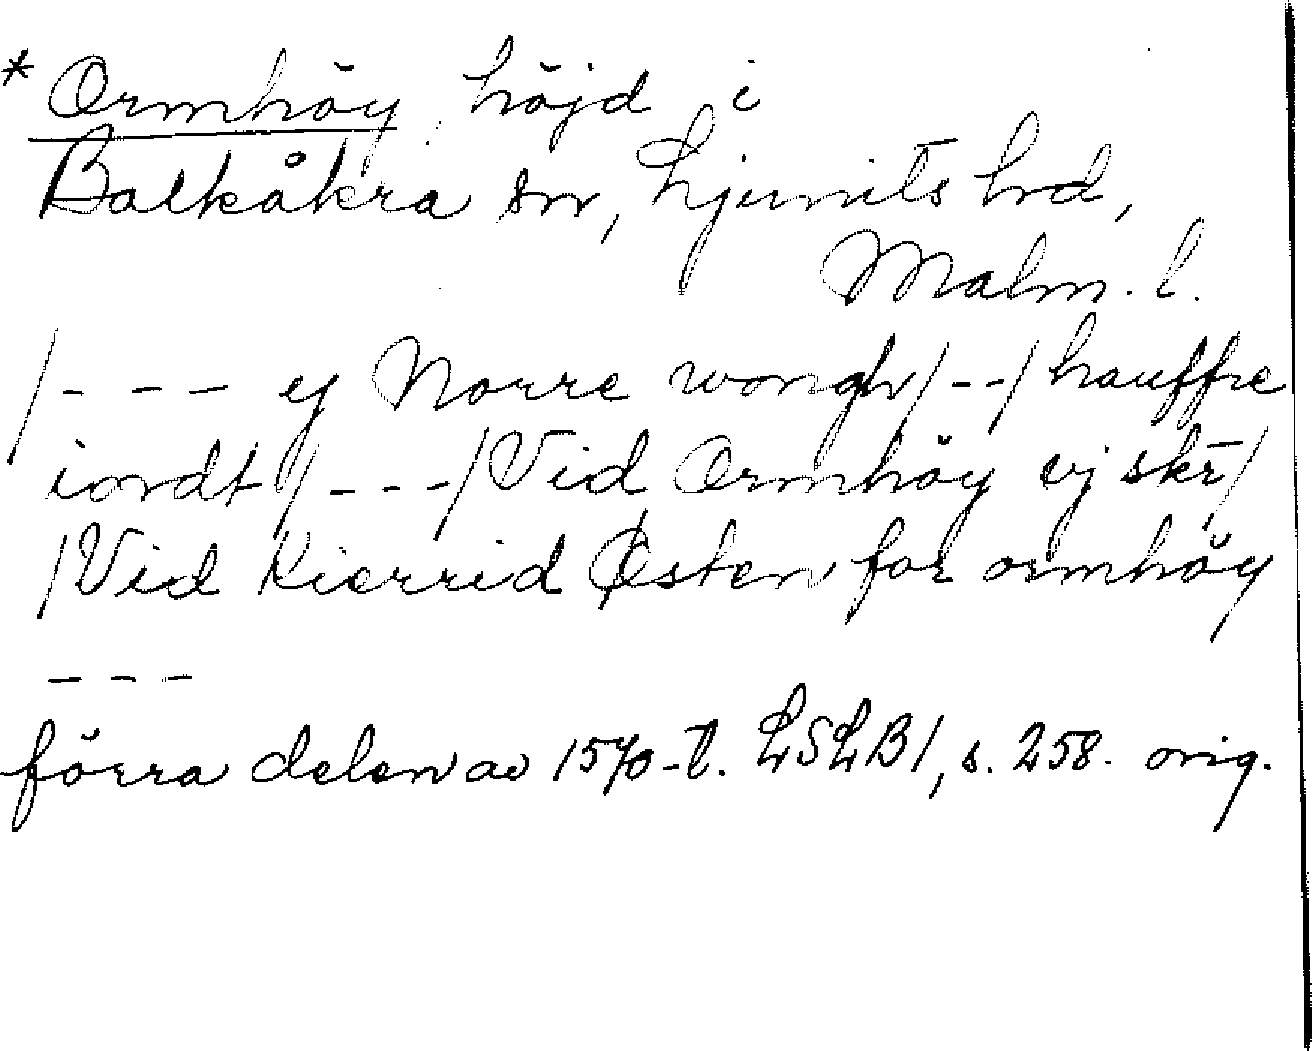 * Ormhöy, höjd i
Balkåkra sn, Ljunits hd,
Malm. l.
/- - - ej Norre wongh/--/hauffre
iordt/---/Vid Ormhöy ej skr/
/Vid Kierrid Østen for ormhöy
- - -
förra delen av 1570-t. LSLB1, s. 258. orig.